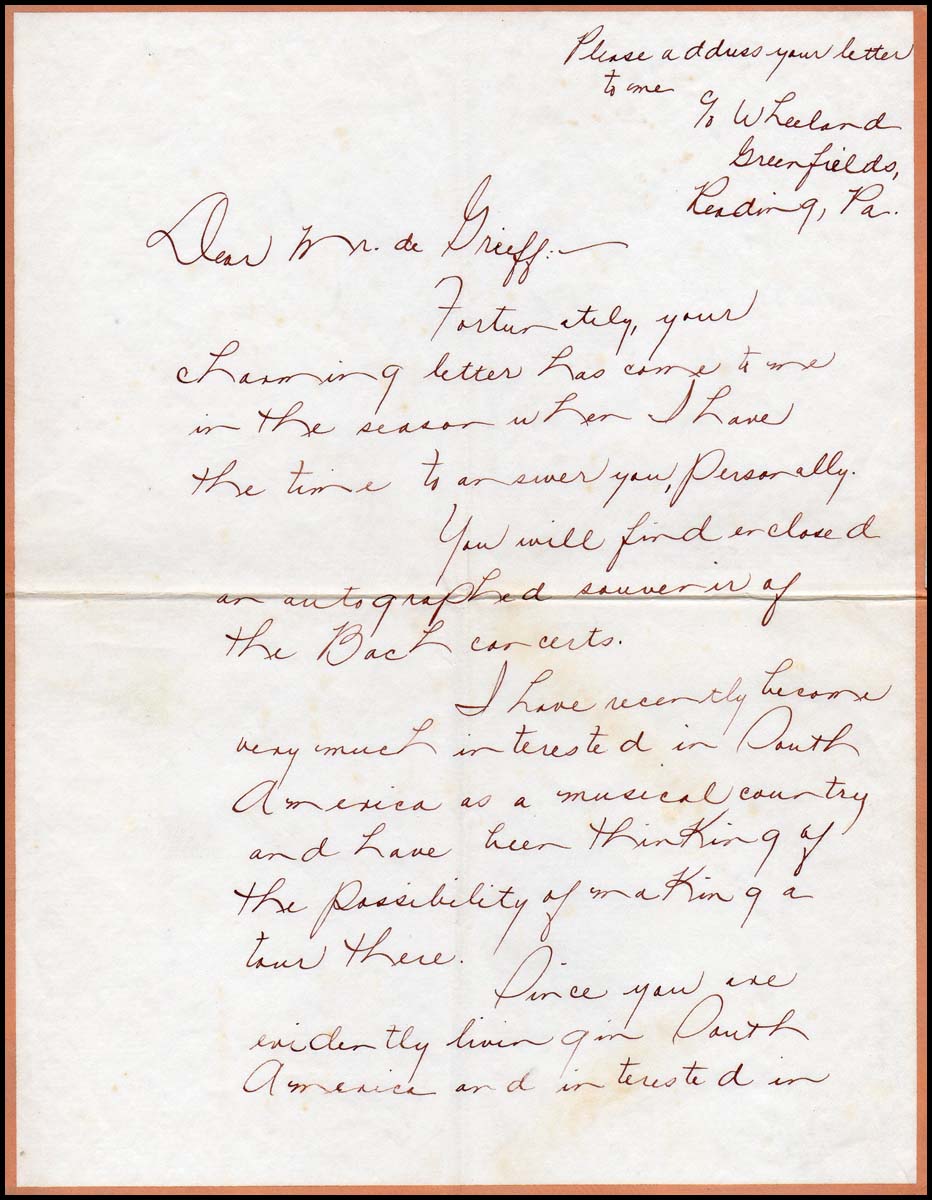 Please address your letter
to me
c/o Wheeland
Greenfields,
Reading, Pa.
Dear Mr. de Grieff:—
Fortunately, your
charming letter has come to me
in the season when I have
the time to answer you, personally.
You will find enclosed
an autographed souvenir of
the Bach concerts.
I have recently become
very much interested in South
America as a musical country
and have been thinking of
the possibility of making a
tour there.
Since you are
evidently living in South
America and interested in